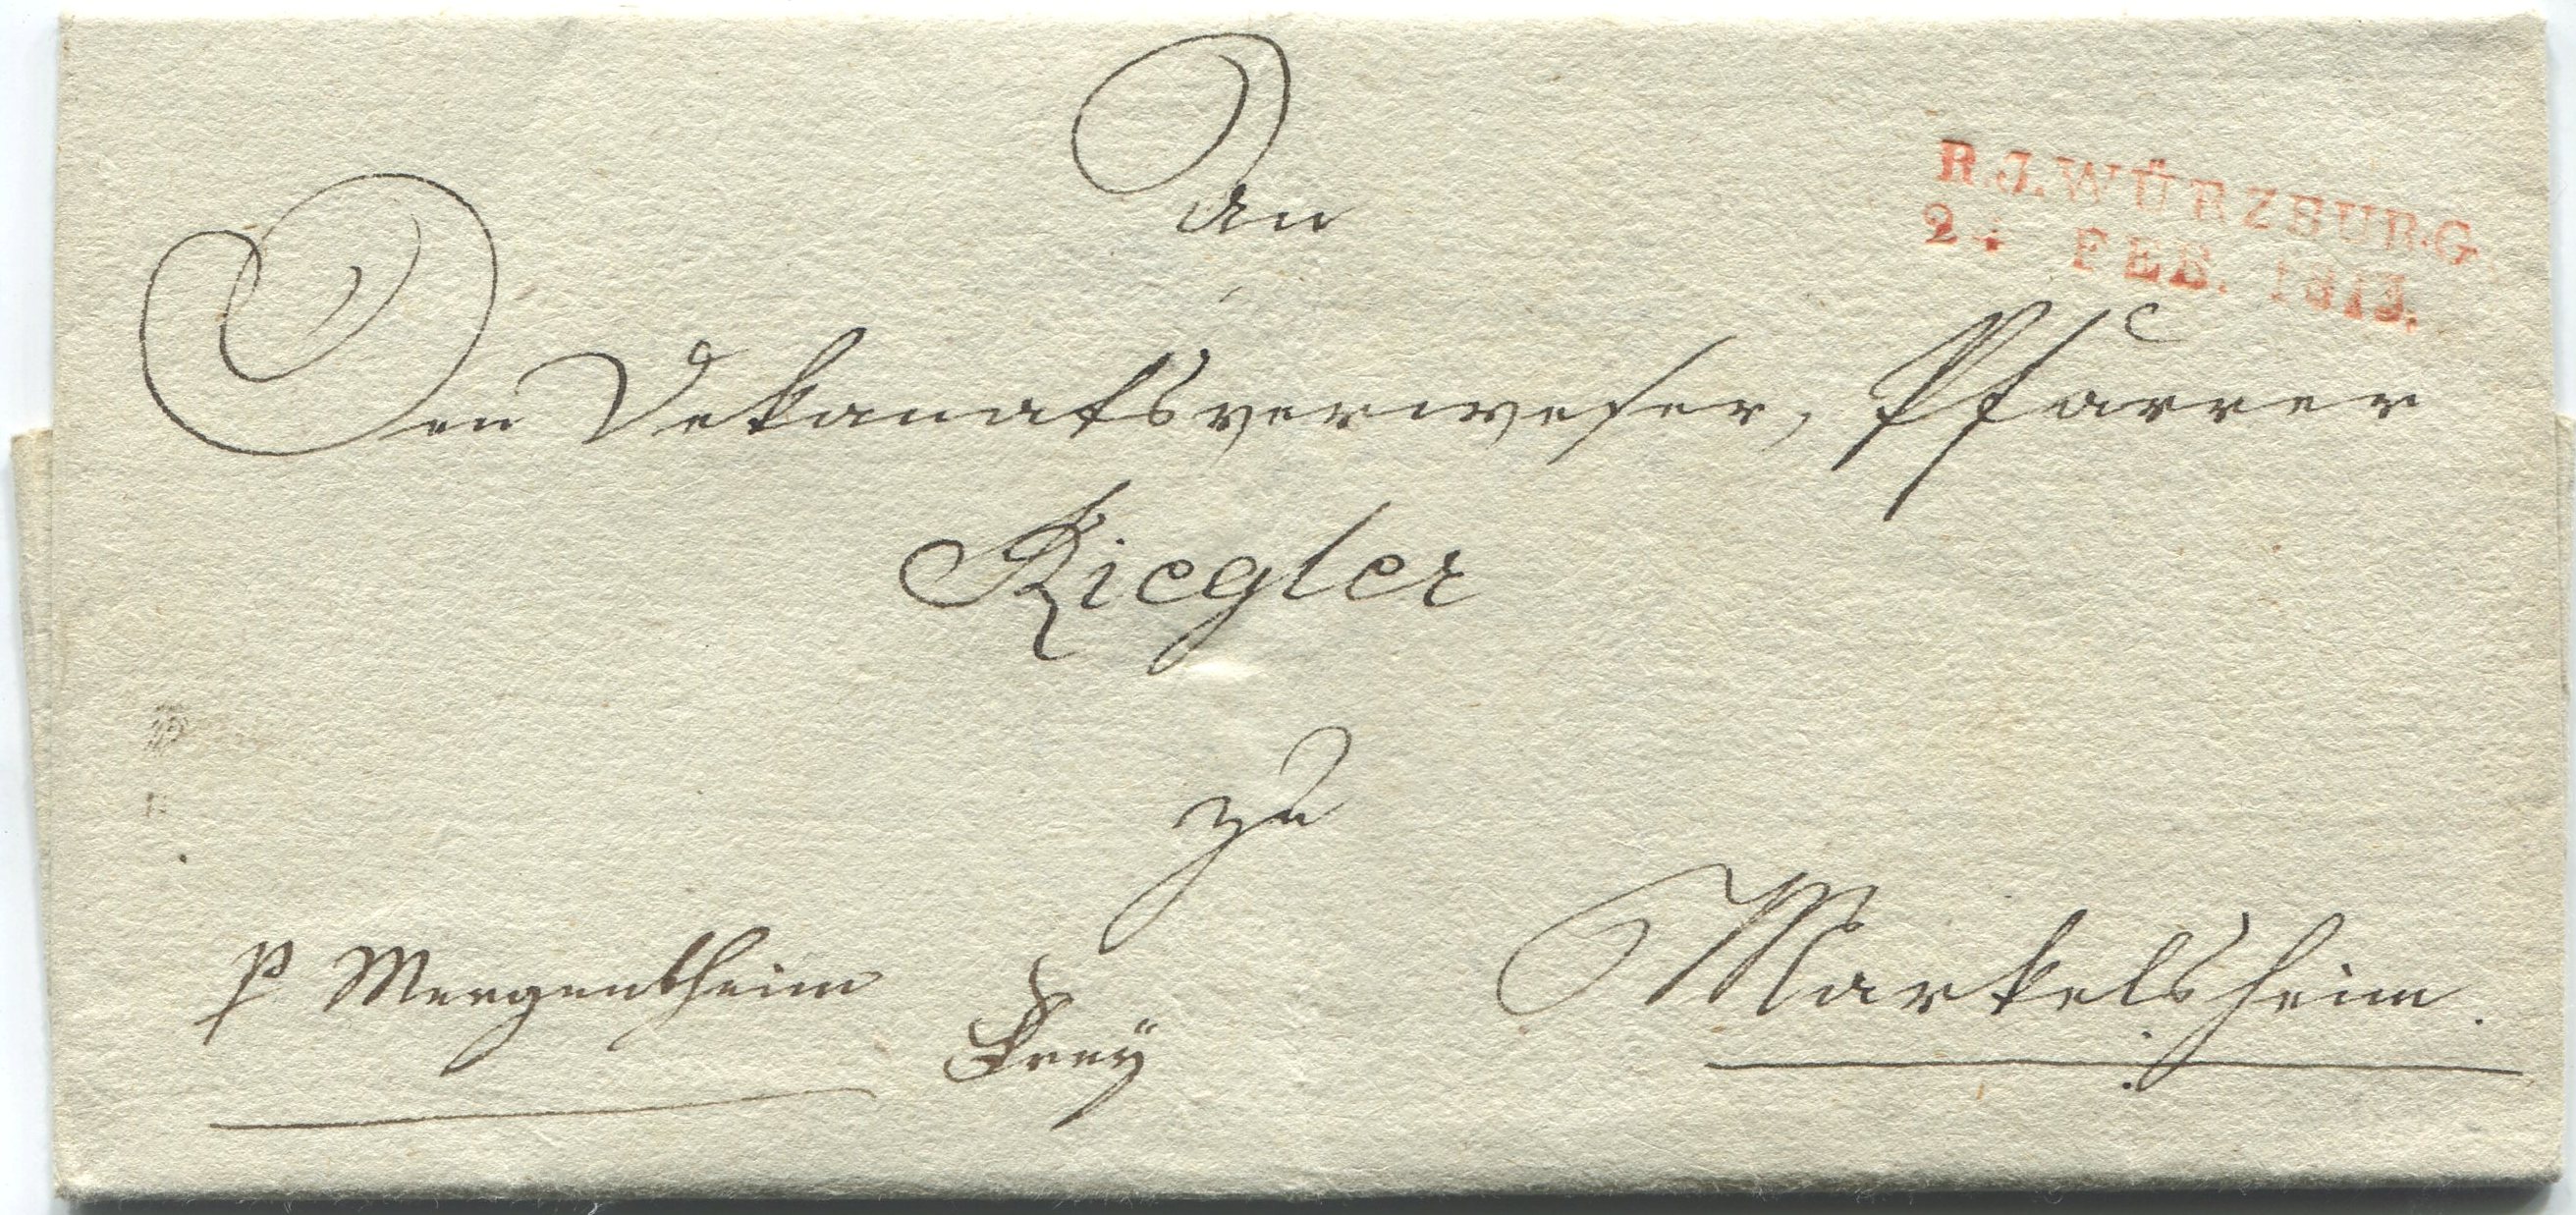 An
R.J.WÜRZBURG.
24 FEB. 1813.
Den Dekanatsverweser, Pfarrer
Riegler
zu
Markelsheim.
p Mergentheim
Frey